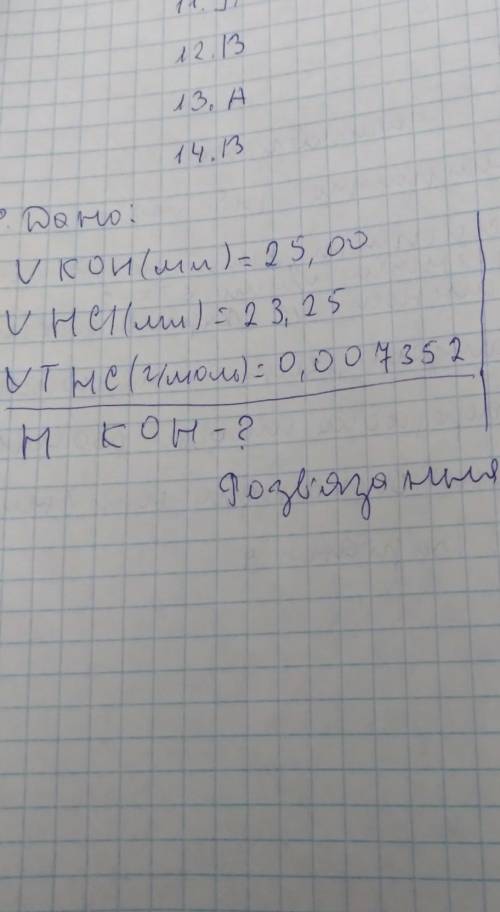 12. В
13. А
14. В
Дано:
V KOH(мл) = 25,00
V HCl(мл) = 23,25
VT HC(г/моль) = 0,007352
H KOH - ?
Розв'язання